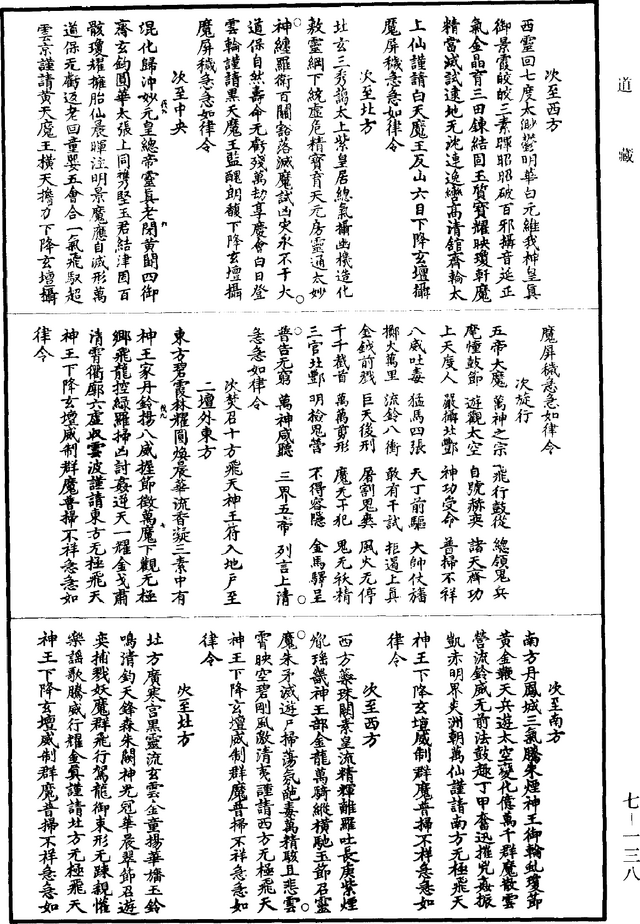 道藏
次至西方
西靈回七度太眇鬱明華白元維我神皇真
御景霞皎皎三素暉昭昭破百邪攝音延正
氣金晶育三田鍊結固玉質寶耀映瓊軒魔
精當滅試逮地无沈連逸嚮高清館齊輪太
上仙謹請白天魔王反山六目下降玄壇攝
魔屏穢急急如律令
次至北方
北玄三秀蔚太上紫皇居總氣攝幽機造化
敕靈綱下統虛危精寶育天元房靈通太妙
神纏羅衛百關豁落滅魔試凶災永不干大
道保自然壽命无虧殘萬劫享慶會白日登
雲輪謹請黑天魔王監醜朗馥下降玄壇攝
魔屏穢急急如律令
次至中央
混化歸沖妙元皇總帝靈真老閑黃闕四御
齋玄鈞圓華太張上同攜堅玉君結津固百
骸瓊耀擁胎仙晨暉注明景魔應自滅形萬
道保无虧迈老回童嬰五會合一氣飛馭超
雲京謹請黃天魔王橫天擔力下降玄壇攝
魔屏穢急急如律令
次旋行
五帝大魔 萬神之宗 飛行鼓從 總領鬼兵
麾幢鼓節 遊觀太空 自號赫奕 諸天齊功
上天度人 嚴攝北酆 神功受命 普掃不祥
八威吐毒 猛馬四張 天丁前驅 大帥仗旛
擲火萬里 流鈴八衝 敢有干試 拒遏上真
金鉞前戮 巨天後刑 屠割鬼爽 風火无停
千千截首 萬萬剪形 魔无干犯 鬼无祅精
三官北酆 明檢鬼營 不得容隱 金馬驛呈
普告无窮 萬神咸聽 三界五帝 列言上清
急急如律令
次焚召十方飛天神王符入地戶至
二壇外東方
東方碧霞林耀圓煥晨華流香凝三素中有
神王家丹鈴揚八威握節徵萬魔下觀无極
鄉飛龍控綠羅掃凶討姦逆天一耀金戈肅
清霄衢廓六虛收雲波謹請東方无極飛天
神王下降玄壇威制群魔普掃不祥急急如
律令
次至南方
南方丹鳳城三氣騰朱煙神王御輪虬瓊節
黃金鞭天兵遊太空變化億萬千群魔散雲
營流鈴威无前法鼓趣丁甲奮迅摧兇姦振
凱赤明界炎洲朝萬仙謹請南方无極飛天
神王下降玄壇威制群魔普掃不祥急急如
律令
次至西方
西方蘂珠闕素皇流精輝離羅吐長庚紫煙
㡯瑶畿神王部金龍萬騎縱橫馳玉節召靈
魔朱矛滅遊尸掃蕩氛皰毒萬精駭且悲雲
霄映空碧剛風敵清夷謹請西方无極飛天
神王下降玄壇威制群魔普掃不祥急急如
律令
次至北方
北方廣寒宮黑靈流玄雲金童揚華旛玉鈴
鳴清鈞天鋒森朱闕神光冠華晨翠節召遊
奕捕戮妖魔群飛行駕龍御東形无踈親懽
樂謠歌騰威行耀金真謹請北方无極飛天
神王下降玄壇威制群魔普掃不祥急急如
七－一三八